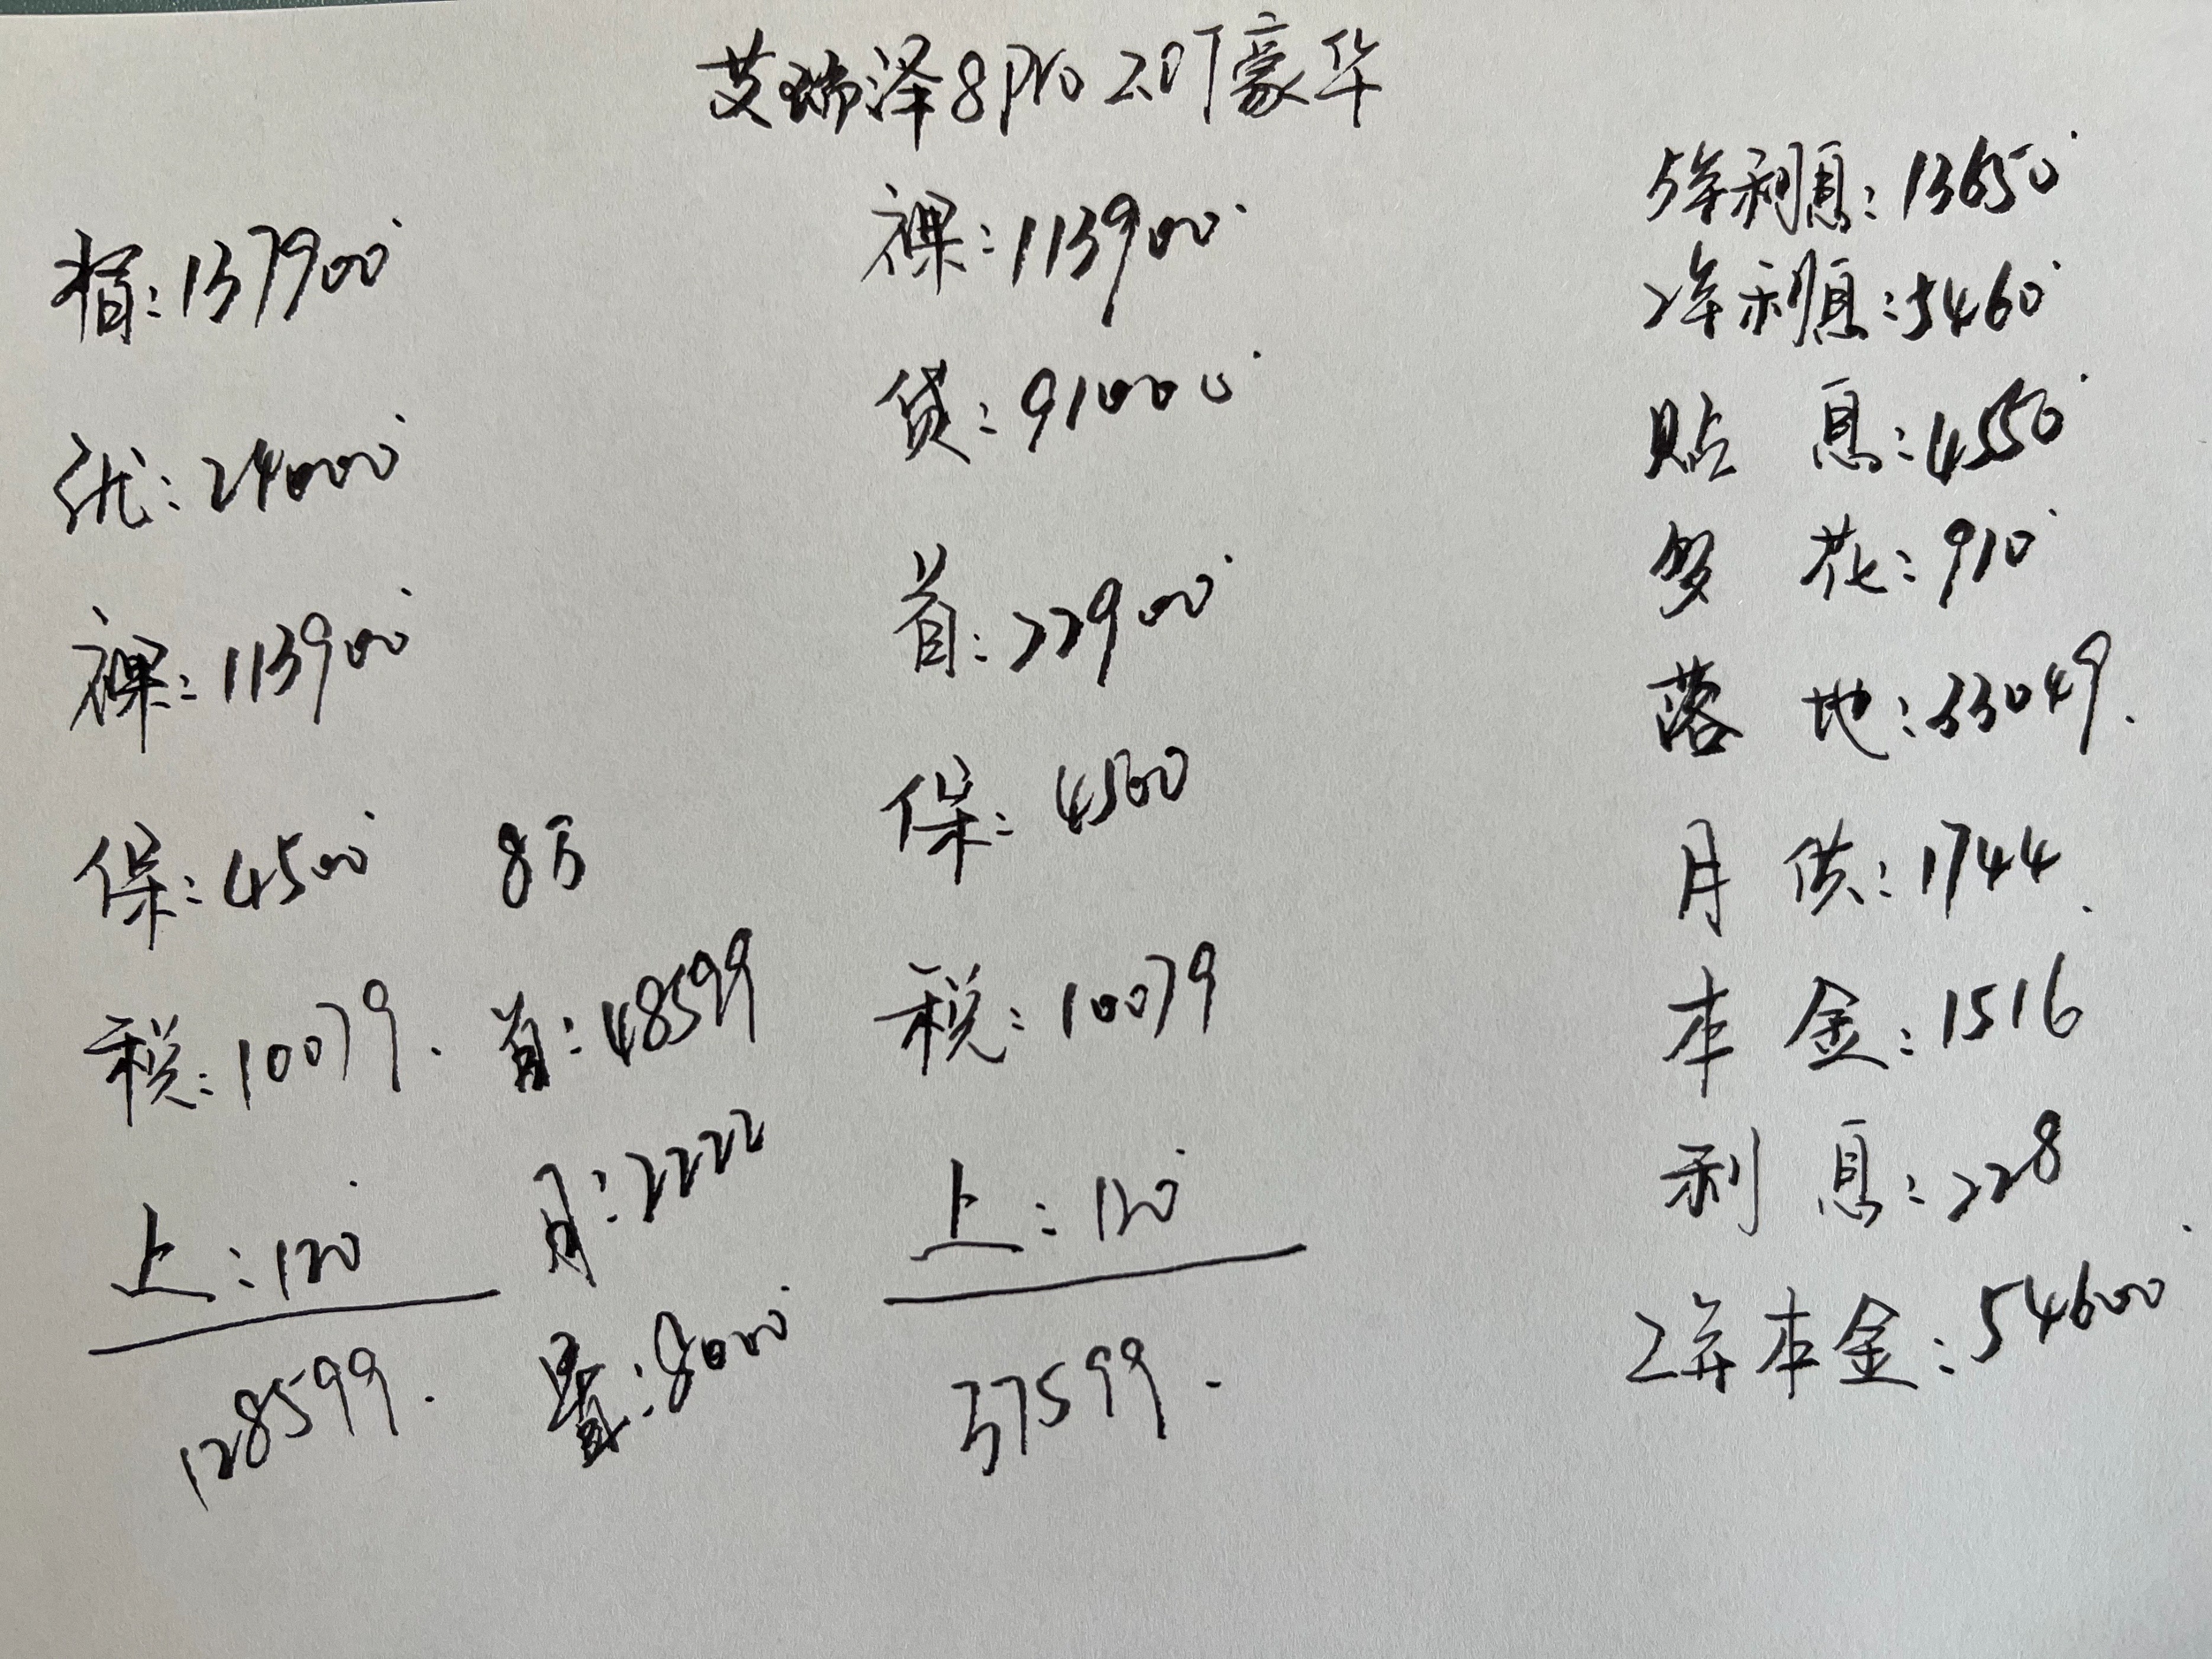 艾瑞泽8pro 2.0T豪华
指:137900
优:24000
裸:113900
保:4500
税:10079.
上:120
128599.
8万
首:48599
月:2222
置:8000
裸:113900
贷:91000
首:22900
保:4500
税:10079
上:120
37599.
5年利息:13650
2年利息:5460
贴息:4550
多花:910
落地:33049.
月供:1744.
本金:1516
利息:228
2年本金:54600